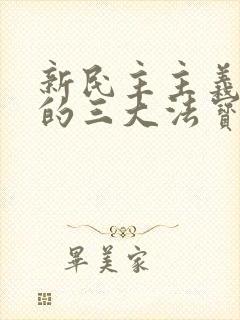 新民主主義
的三大法寶
畢美家